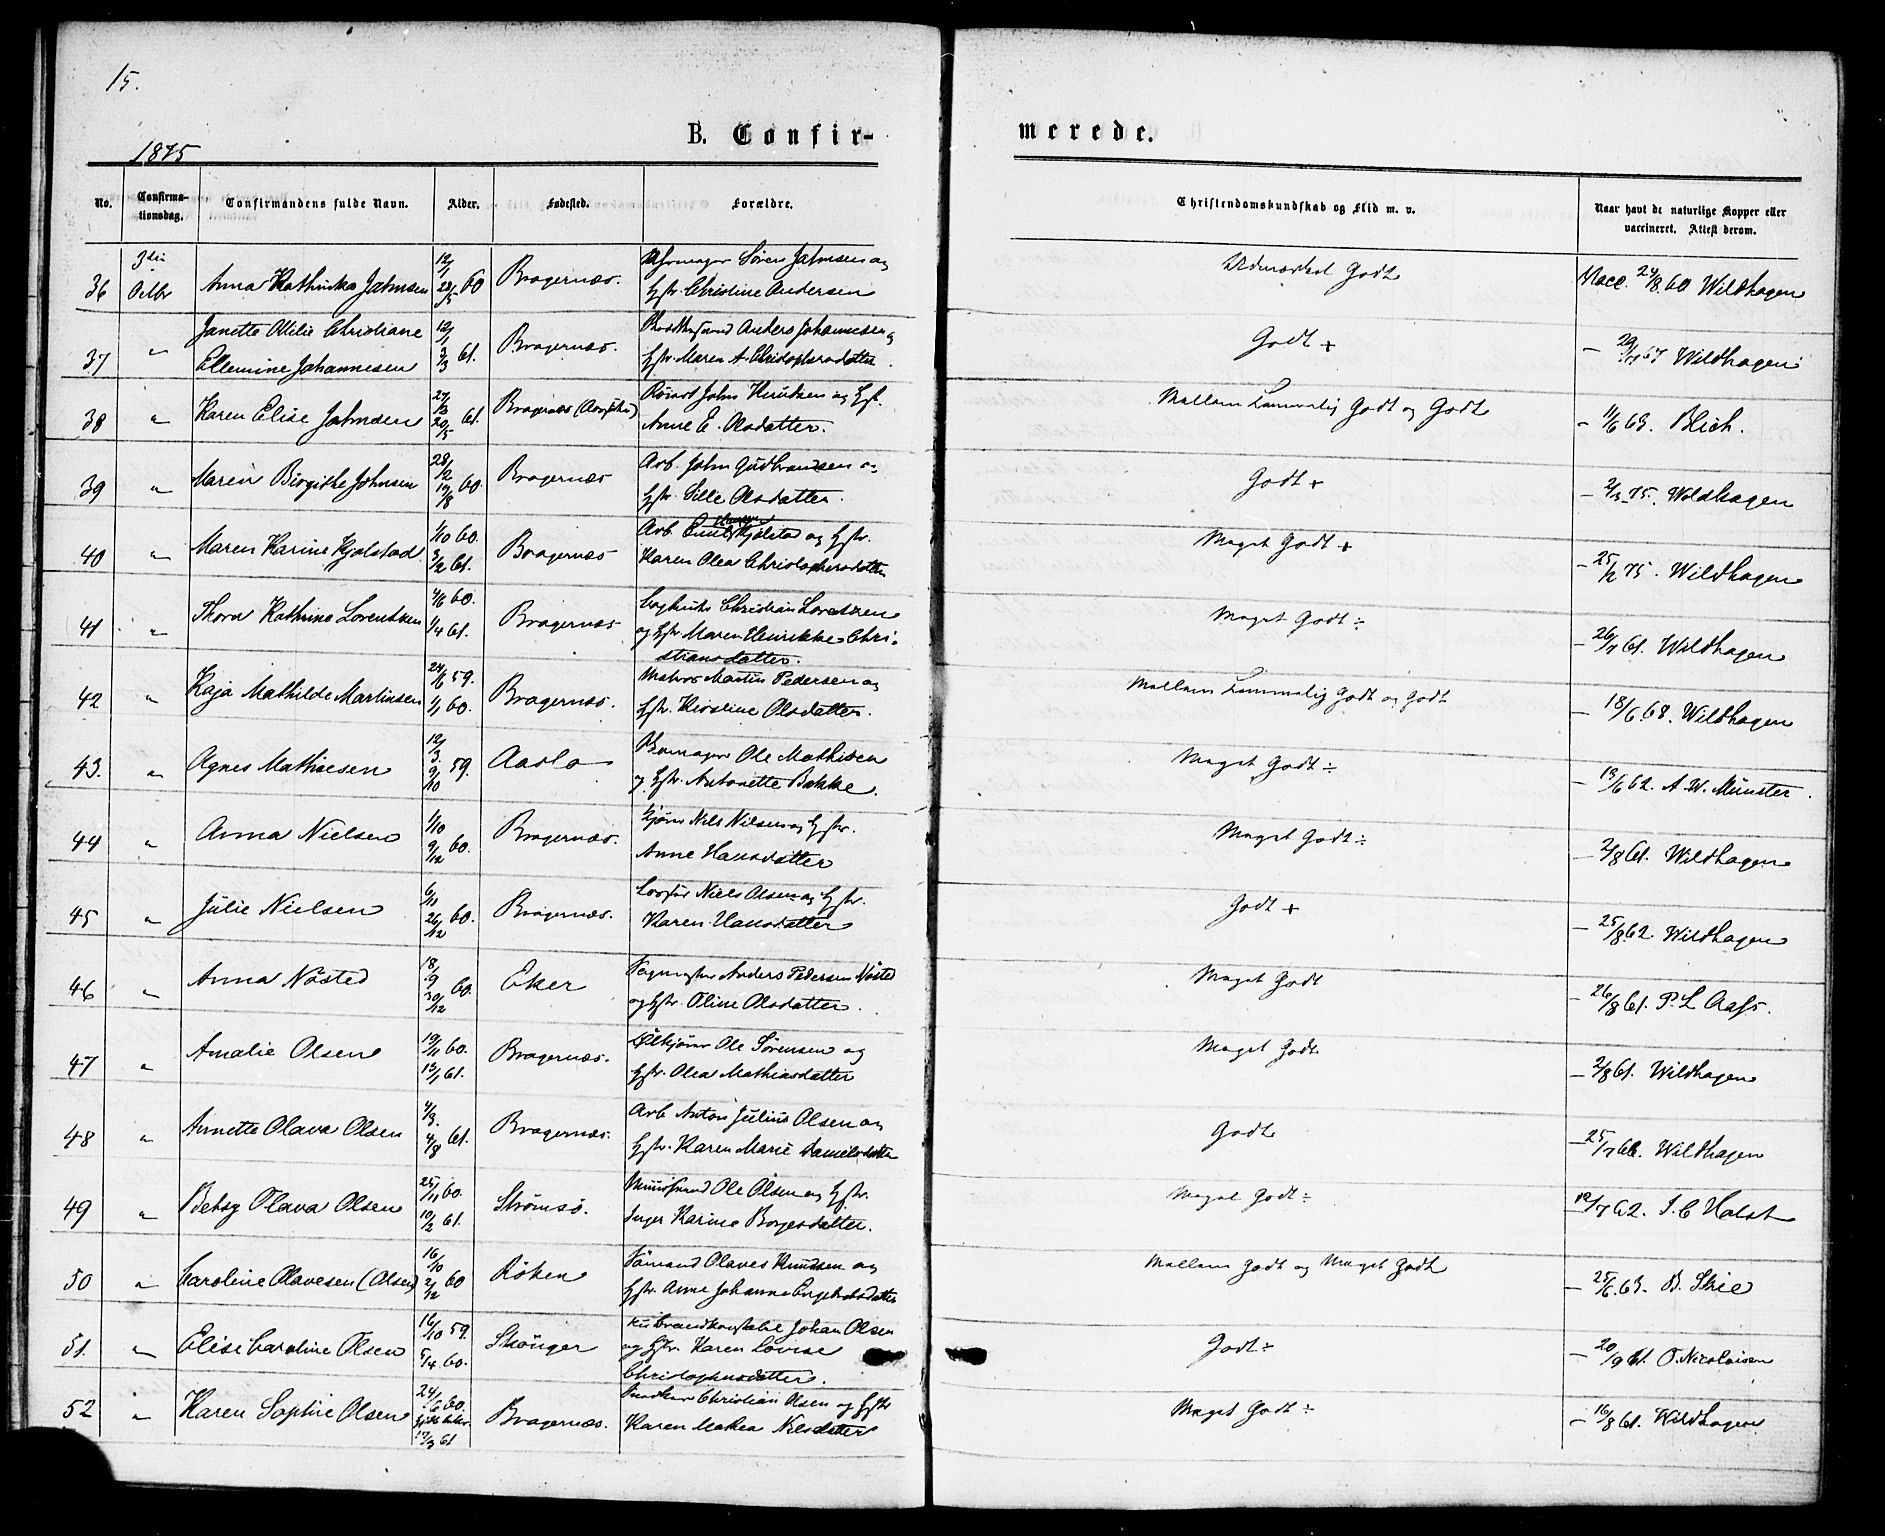 15.
1875
B. Confir-
merede.
No.
Confirma-
tionsdag.
Confirmandens fulde Navn.
Alder.
Fødested.
Forældre.
Christendomskundskab og Flid m. v.
Naar havt de naturlige Kopper eller
vaccineret. Attest derom.
3die
36 Octbr Anna Kathinka Jahnsen 12/1 60 Bragernæs. Søren Jahnsen og
Hstr. Christine Andersen
Udmærket Godt
Vacc. 24/8 60 Wildhagen
37 " Janette Otilie Christiane
Ellemine Johannesen 61. Bragernæs. Anders Johannesen og
Hstr. Maren A. Christophersdatter
Godt +
Wildhagen
38 " Karen Elise Johnsen 61. Bragernæs John Knutsen og Hst.
Anne E. Olsdatter.
Mellem Temmelig Godt og Godt
- 11/6 63. Blich.
39 " Maren Birgithe Johnsen 28/2 19/8 60. Bragernæs Arb. John Gudbrandsen o
Hstr. Sille Olsdatter.
Godt +
- 2/3 75. Wildhagen
40 " Maren Karine Kjølstad 1/10 60. 3/2 61. Bragernæs Arb. Emil Kjølstad og Hstr.
Karen Olea Christophersdatter
Meget Godt +
- 25/2 75. Wildhagen
41 " Thora Kathrine Lorentzen 4/6 60. 1/4 61. Bragernæs Christian Lorentzen
og Hstr Maren Henrikke Chri-
stiansdatter.
Meget Godt ÷
- 26/7 61. Wildhagen
42 " Kaja Mathilde Martinsen 24/6 59. 1/1 60. Bragernæs. Matros Martin Pedersen og
Hstr. Kirstine Olsdatter.
Mellem Temmelig Godt og Godt
- 18/6 68. Wildhagen
43. " Agnes Mathisen 12/3. 9/10 59. Ole Mathisen
og Hstr. Antonette Bakke.
Meget Godt ÷
- 13/6 62. A. W. Münster.
44 " Anna Nielsen 1/10 9/12 60. Bragernæs. Nils Nilsen og Hstr.
Anne Hansdatter
Meget Godt ÷
- 2/8 61. Wildhagen
45 " Julie Nielsen 6/11 26/12 60. Bragernæs. Niels Olsen og Hstr.
Karen Hansdatter
Godt +
- 25/8 62. Wildhagen
46 " Anna Nøsted 18/9 30/12 60. Eker Anders Pedersen Nøsted
og Hstr. Oline Olsdatter.
Meget Godt
- 26/8 61. P. L Aass.
47 " Amalie Olsen 19/11 60. 13/1 61. Bragernæs. Ole Sørensen og
Hstr. Olea Mathiasdatter
Meget Godt
- 2/8 61. Wildhagen
48 " Annette Olava Olsen 4/3. 4/8 61. Bragernæs. Arb Anton Julius Olsen og
Hstr. Karen Marie Danielsdatter
Godt
Wildhagen
49 " Betsy Olava Olsen 25/11 60. 10/2 61. Strømsø. Ole Olsen og Hstr.
Inger Karine Borgesdatter.
Meget Godt ÷
J. C Holst
50 " Caroline Olavesen (Olsen) 16/10 2/12 60 Røken Sømand Olaves Knudsen og
Hstr. Anne Johanne Engebretsdatter
Mellem Godt og Meget Godt
- 25/6. 63. B. Skie
51. " Elise Caroline Olsen 16/10 59. 5/4 60. Johan Olsen
og Hstr. Karen Lovise
Christophersdatter.
Godt ÷
- 20/9 61. O. Nicolaisen
52 " Karen Sophie Olsen 24/6 60. 17/3 61 Bragernæs. Christian Olsen og Hstr
Karen Mathea Nilsdatter
Meget Godt ÷
- 16/8 61. Wildhagen